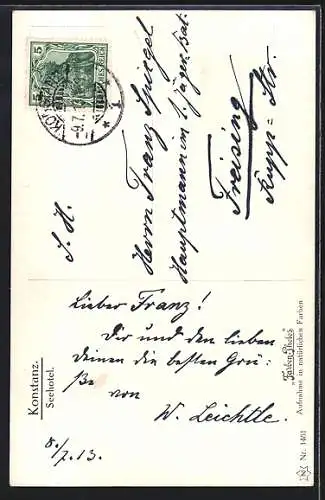 5
KONSTANZ
-9.7.13
* 1
S. H.
Herrn Franz Spiegel
Hauptmann im 1. Jäger Bat.
Freising
Kupp=Str.
Lieber Franz!
Dir und den lieben
Deinen die besten Grü=
ße von
W. Leichtle.
8./7.13.
Konstanz.
Seehotel.
Aufnahme in natürlichen Farben
Nr. 1401